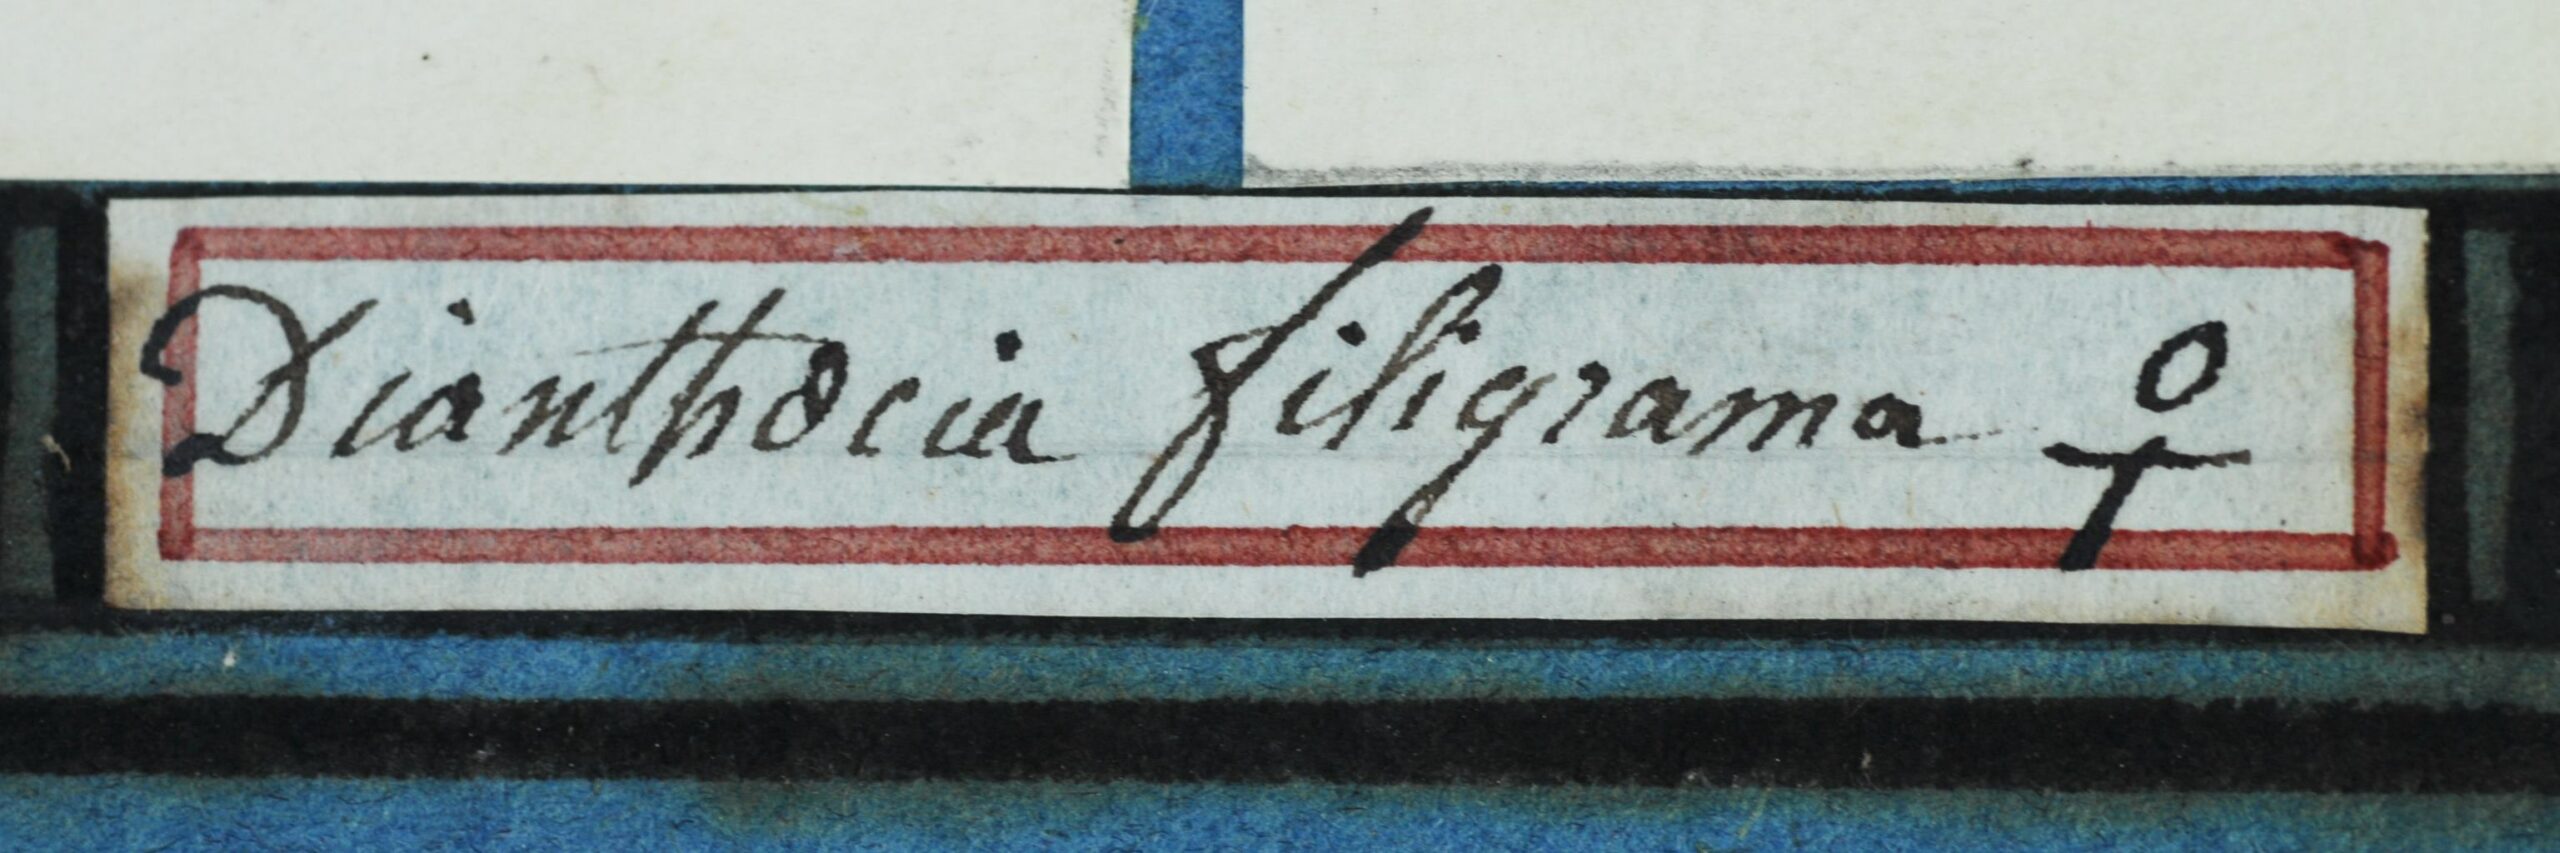 Dianthœcia filigrama ♀